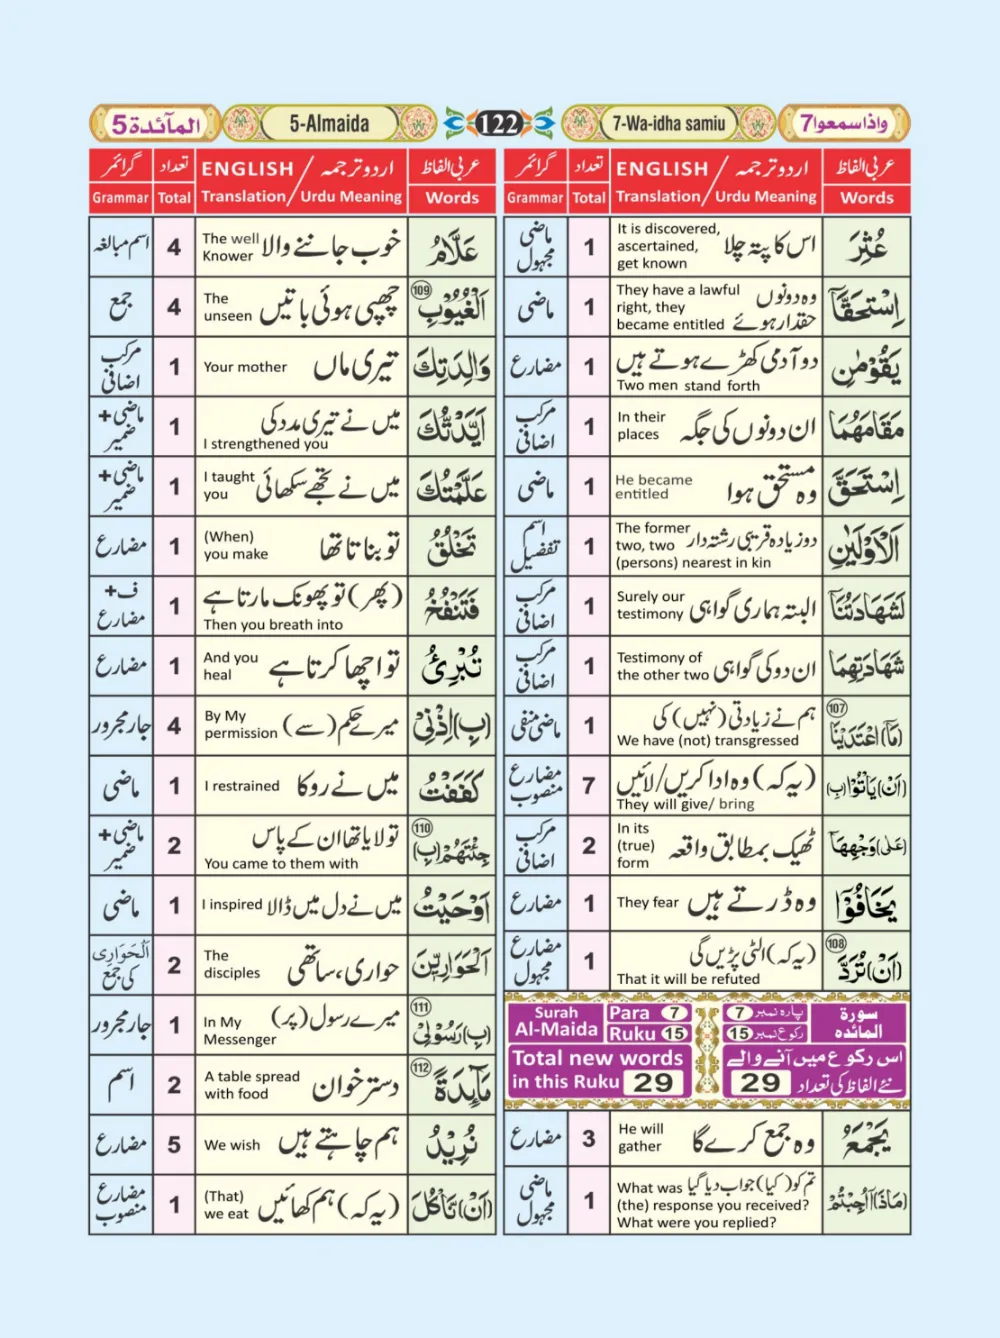 واذاسمعوا7
7-Wa-idha samiu
122
5-Almaida
المآئدة5
عربی الفاظ
Words
ENGLISH / اردو ترجمہ
Translation/ Urdu Meaning
تعداد
Total
گرائمر
Grammar
عُثِرَ
اس کا پتہ چلا
It is discovered,
ascertained,
get known
1
ماضی
مجہول
اِسْتَحَقَّآ
وہ دونوں
حقدار ہوئے
They have a lawful
right, they
became entitled
1
ماضی
يَقُوْمٰنِ
دو آدمی کھڑے ہوتے ہیں
Two men stand forth
1
مضارع
مَقَامَهُمَا
ان دونوں کی جگہ
In their
places
1
مرکب
اضافی
اِسْتَحَقَّ
وہ مستحق ہوا
He became
entitled
1
ماضی
اَلْاَوْلَيٰنِ
دو زیادہ قریبی رشتہ دار
The former
two, two
(persons) nearest in kin
1
اسم
تفضیل
لَشَهَادَتُنَآ
البتہ ہماری گواہی
Surely our
testimony
1
مرکب
اضافی
شَهَادَتِهِمَا
ان دو کی گواہی
Testimony of
the other two
1
مرکب
اضافی
107
(مَا)اعْتَدَيْنَآ
ہم نے زیادتی (نہیں) کی
We have (not) transgressed
1
ماضی منفی
(اَنْ)يَّاْتُوْا(بِ)
(یہ کہ) وہ ادا کریں/لائیں
They will give/ bring
7
مضارع
منصوب
(عَلٰى)وَجْهِهَآ
ٹھیک بمطابق واقعہ
In its
(true)
form
2
مرکب
اضافی
يَخَافُوْٓا
وہ ڈرتے ہیں
They fear
1
مضارع
108
(اَنْ)تُرَدَّ
(یہ کہ) الٹی پڑیں گی
That it will be refuted
1
مضارع
مجہول
Surah
Al-Maida
Para 7
Ruku 15
پارہ نمبر 7
رکوع نمبر 15
سورة
المائده
Total new words
in this Ruku 29
اس رکوع میں آنے والے
نئے الفاظ کی تعداد 29
يَجْمَعُ
وہ جمع کرے گا
He will
gather
3
مضارع
(مَاذَا)اُجِبْتُمْ
تم کو (کیا) جواب دیا گیا
What was
(the) response you received?
What were you replied?
1
ماضی
مجہول
عربی الفاظ
Words
ENGLISH / اردو ترجمہ
Translation/ Urdu Meaning
تعداد
Total
گرائمر
Grammar
عَلَّامُ
خوب جاننے والا
The well
Knower
4
اسم مبالغہ
109
اَلْغُيُوْبِ
چھپی ہوئی باتیں
The
unseen
4
جمع
وَالِدَتِكَ
تیری ماں
Your mother
1
مرکب
اضافی
اَيَّدْتُّكَ
میں نے تیری مدد کی
I strengthened you
1
ماضی+
ضمیر
عَلَّمْتُكَ
میں نے تجھے سکھائی
I taught
you
1
ماضی+
ضمیر
تَخْلُقُ
تو بناتا تھا
(When)
you make
1
مضارع
فَتَنْفُخُ
(پھر) تو پھونک مارتا ہے
Then you breath into
1
ف+
مضارع
تُبْرِئُ
تو اچھا کرتا ہے
And you
heal
1
مضارع
(بِ)اِذْنِيْ
میرے حکم (سے)
By My
permission
4
جار مجرور
كَفَفْتُ
میں نے روکا
I restrained
1
ماضی
110
جِئْتَهُمْ(بِ)
تو لایا تھا ان کے پاس
You came to them with
2
ماضی+
ضمیر
اَوْحَيْتُ
میں نے دل میں ڈالا
I inspired
1
ماضی
اَلْحَوَارِيّٖنَ
حواری، ساتھی
The
disciples
2
اَلْحَوَارِی
کی جمع
111
(بِ)رَسُوْلِيْ
میرے رسول (پر)
In My
Messenger
1
جار مجرور
112
مَآئِدَةً
دستر خوان
A table spread
with food
2
اسم
نُرِيْدُ
ہم چاہتے ہیں
We wish
5
مضارع
(اَنْ)نَّاْكُلَ
(یہ کہ) ہم کھائیں
(That)
we eat
1
مضارع
منصوب